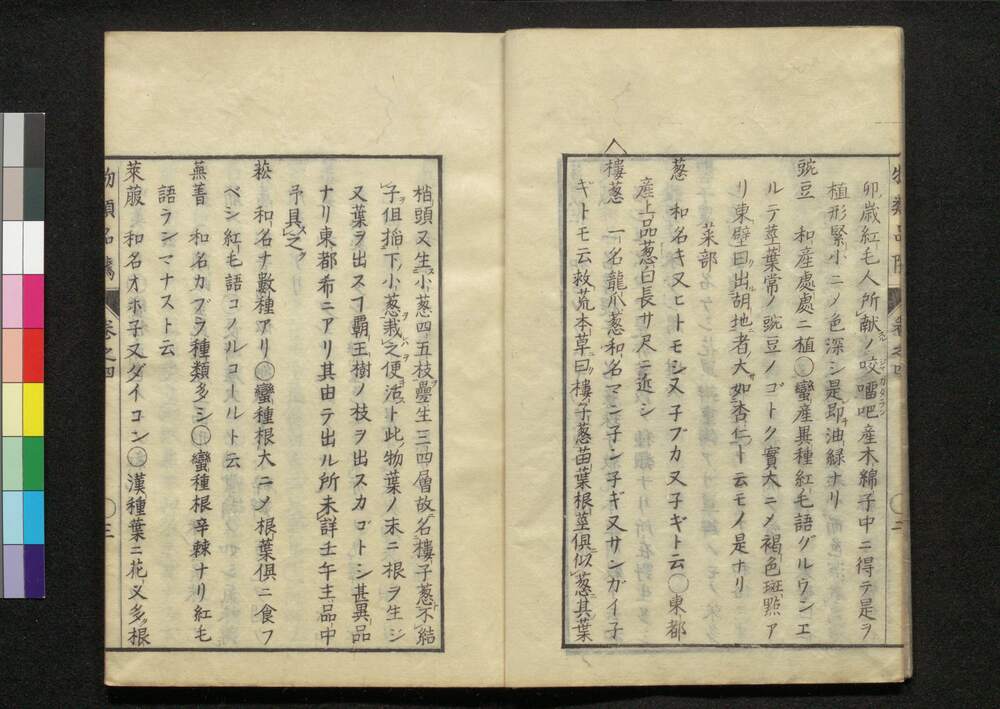 卯歳紅毛人所献ノ咬𠺕吧産木綿子中ニ得テ是ヲ
植形緊小ニメ色深シ是即油緑ナリ
豌豆 和産處處ニ植○蠻産異種紅毛語グルウンエ
ルテ莖葉常ノ豌豆ノゴトク實大ニメ褐色斑㸃ア
リ東壁曰出胡地者大如杏仁ト云モノ是ナリ
菜部
葱 和名キ又ヒトモシ又子ブカ又子ギト云○東都
產上品葱白長サ尺ニ近シ
樓葱 一名龍爪葱和名マン子ン子ギ又サンガイ子
ギトモ云救荒本草曰樓子葱苗葉根莖俱似葱其葉
物類品隲 卷之四 ○三
梢頭又生小葱四五枝疊生三四層故名樓子葱不結
子但搯下小葱栽之便活ト此物葉ノ末ニ根ヲ生シ
又葉ヲ出スヿ覇王樹ノ枝ヲ出スカゴトシ甚異品
ナリ東都希ニアリ其由テ出ル所未詳壬午主品中
予具之
菘 和名ナ數種アリ○蠻種根大ニメ根葉俱ニ食フ
ベシ紅毛語コノルコールト云
蕪菁 和名カブラ種類多シ○蠻種根辛辣ナリ紅毛
語ランマナスト云
萊菔 和名オホ子又ダイコン○漢種葉ニ花叉多根
物類品隲 卷之四 ○三